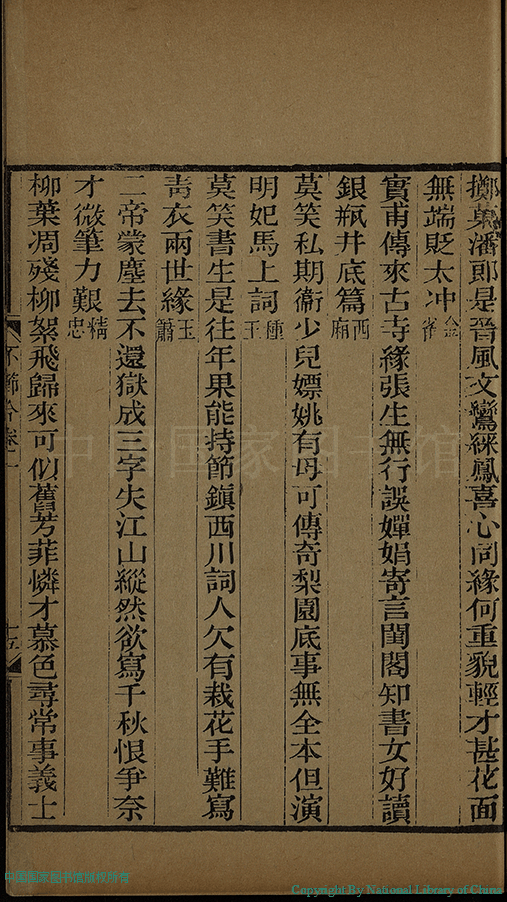 擲東潘郎是晉風文鸞綵鳳喜心同緣何重貌輕才甚花面
無端貶太冲金雀
實甫傳來古寺緣張生無行誤嬋娟寄言閨閣知書女好讀
銀瓶井底篇西廂
莫笑私期衞少兒嫖姚有母可傳奇梨園底事無全本但演
明妃馬上詞種玉
莫笑書生是往年果能持節鎭西川詞人欠有栽花手難寫
靑衣兩世緣玉簫
二帝蒙塵去不還獄成三字失江山縱然欲寫千秋恨爭奈
才微筆力艱精忠
柳葉凋殘柳絮飛歸來可似舊芳菲憐才慕色尋常事義士
卷一
十五
中国国家图书馆
中国国家图书馆版权所有
Copyright By National Library of China